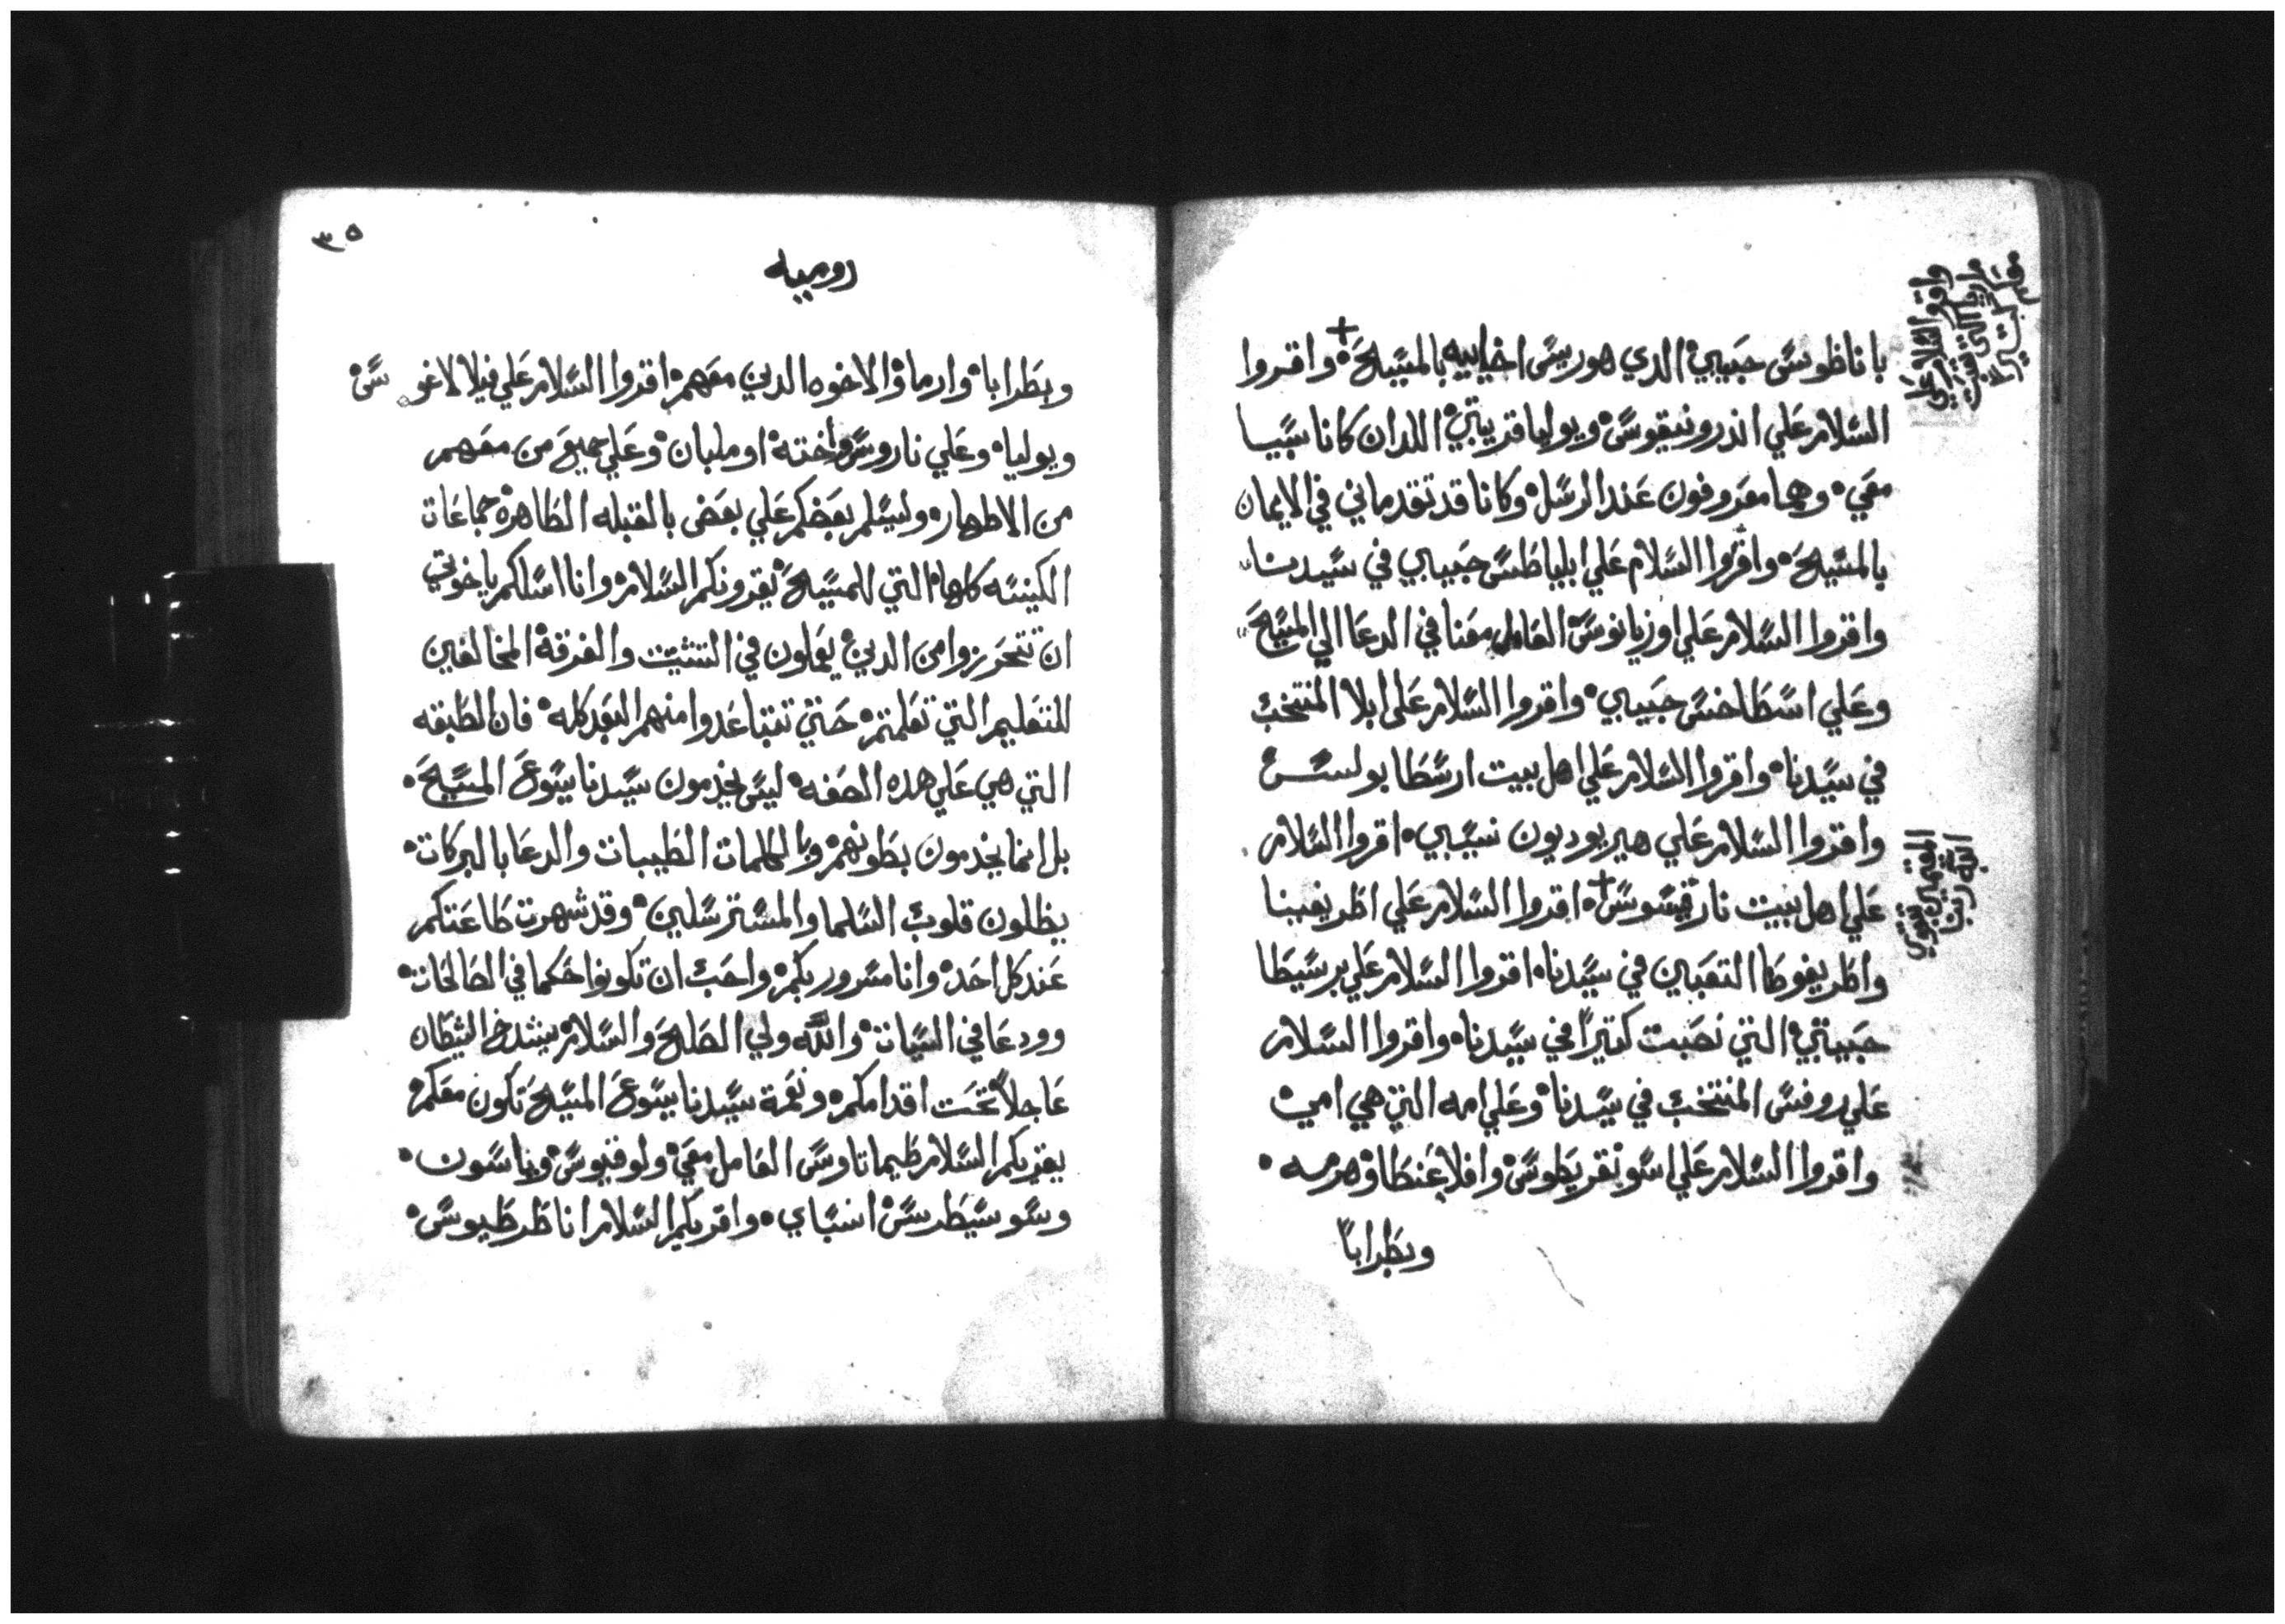 باناظوس حبيبي الدي هو ريس اخاييه بالمسيح + واقروا
السلام علي اندرونيقوس ويوليا قريبتي اللدان كانا سبيا
معي وهما معروفون عند الرسل وكانا قد تقدماني في الايمان
بالمسيح واقروا السلام علي ابلياطس حبيبي في سيدنا
واقروا السلام علي اوزبانوس العامل معنا في الدعا الي المسيح
وعلي اسطاخس حبيبي واقروا السلام على ابلا المنتخب
في سيدنا واقروا السلام علي اهل بيت ارسطابولس
واقروا السلام علي هيريوديون نسيبي اقروا السلام
علي اهل بيت نارقيسوس + اقروا السلام علي اطريفينا
واطريفوطا التعبين في سيدنا اقروا السلام علي برسيطا
حبيبتي التي نصبت كتيرا في سيدنا واقروا السلام
علي روفس المنتخب في سيدنا وعلي امه التي هي امي
واقروا السلام علي اسونقريطوس وافلاغنطا وهرمه
وبطرابا
واقروا السلام علي
مريا التي تعبت
المقيمين بتقوي
الله ربنا
٣٥
روميه
وبطرابا وارما والاخوه الدين معهم اقروا السلام علي فيلالاغوس
ويوليا وعلي ناروس واخته اوملبان وعلي جميع من معهم
من الاطهار وليسلم بعضكم علي بعض بالقبله الطاهره جماعات
الكنيسه كلها التي للمسيح يقرونكم السلام وانا اسلكم ياخوتي
ان تتحرزوا من الدين يعملون في التشتيت والفرقة المخالفين
للتعليم التي تعلمتم حتي تتباعدوا منهم البعد كله فان الطبقه
التي هي علي هده الصفه ليس يخدمون سيدنا يسوع المسيح
بل انما يخدمون بطونهم وبالكلمات الطيبات والدعا بالبركات
يظلون قلوب السلما والمسترسلين وقد شهرت طاعتكم
عند كل احد وانا مسرور بكم واحب ان تكونوا حكما في الصالحات
وودعا في السيات والله ولي الصلح والسلام يشدخ الشيطان
عاجلا تحت اقدامكم ونعمة سيدنا يسوع المسيح تكون معكم
يقريكم السلام طيماتاوس العامل معي ولوقيوس وياسون
وسوسيطرس انسباي واقريكم السلام انا طرطيوس